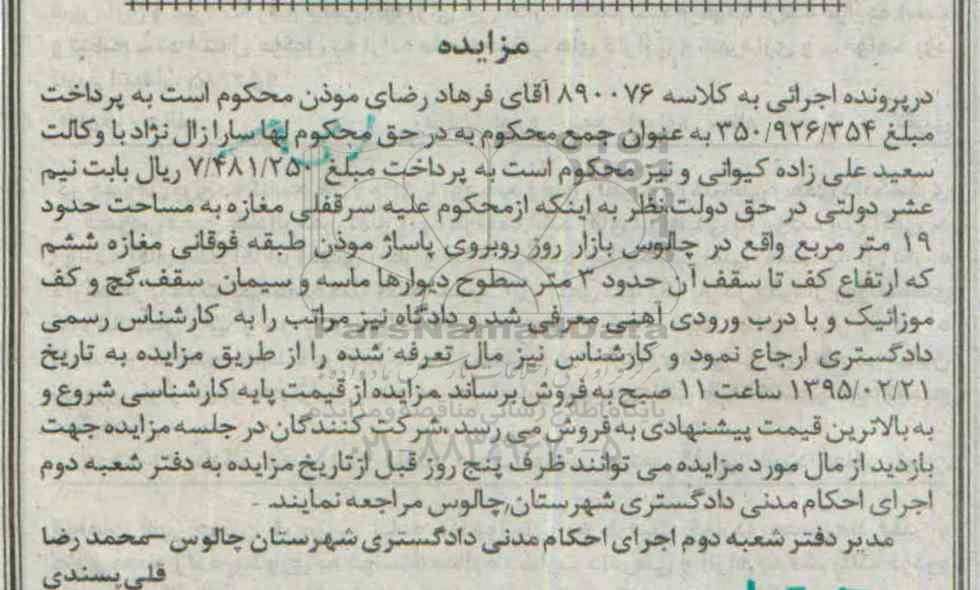 مزایده
درپرونده اجرائی به کلاسه ۸۹۰۰۷۶ آقای فرهاد رضای موذن محکوم است به پرداخت
مبلغ ۳۵۰/۹۲۶/۳۵۴ به عنوان جمع محکوم به در حق محکوم لها سارا زال نژاد با وکالت
سعید علی زاده کیوانی و نیز محکوم است به پرداخت مبلغ ۷/۴۸۱/۲۵۰ ریال بابت نیم
عشر دولتی در حق دولت،نظر به اینکه ازمحکوم علیه سرقفلی مغازه به مساحت حدود
۱۹ متر مربع واقع در چالوس بازار روز روبروی پاساژ موذن طبقه فوقانی مغازه ششم
که ارتفاع کف تا سقف آن حدود ۳ متر سطوح دیوارها ماسه و سیمان سقف،گچ و کف
موزائیک و با درب ورودی آهنی معرفی شد و دادگاه نیز مراتب را به کارشناس رسمی
دادگستری ارجاع نمود و کارشناس نیز مال تعرفه شده را از طریق مزایده به تاریخ
۱۳۹۵/۰۲/۲۱ ساعت ۱۱ صبح به فروش برساند .مزایده از قیمت پایه کارشناسی شروع و
به بالاترین قیمت پیشنهادی به فروش می رسد ،شرکت کنندگان در جلسه مزایده جهت
بازدید از مال مورد مزایده می توانند ظرف پنج روز قبل ازتاریخ مزایده به دفتر شعبه دوم
اجرای احکام مدنی دادگستری شهرستان چالوس مراجعه نمایند. -
مدیر دفتر شعبه دوم اجرای احکام مدنی دادگستری شهرستان چالوس –محمد رضا
قلی پسندی
ParsNamadData
پایگاه اطلاع رسانی مناقصه و مزایده
۰۲۱-۸۸۳۴۹۶۷۰-۵